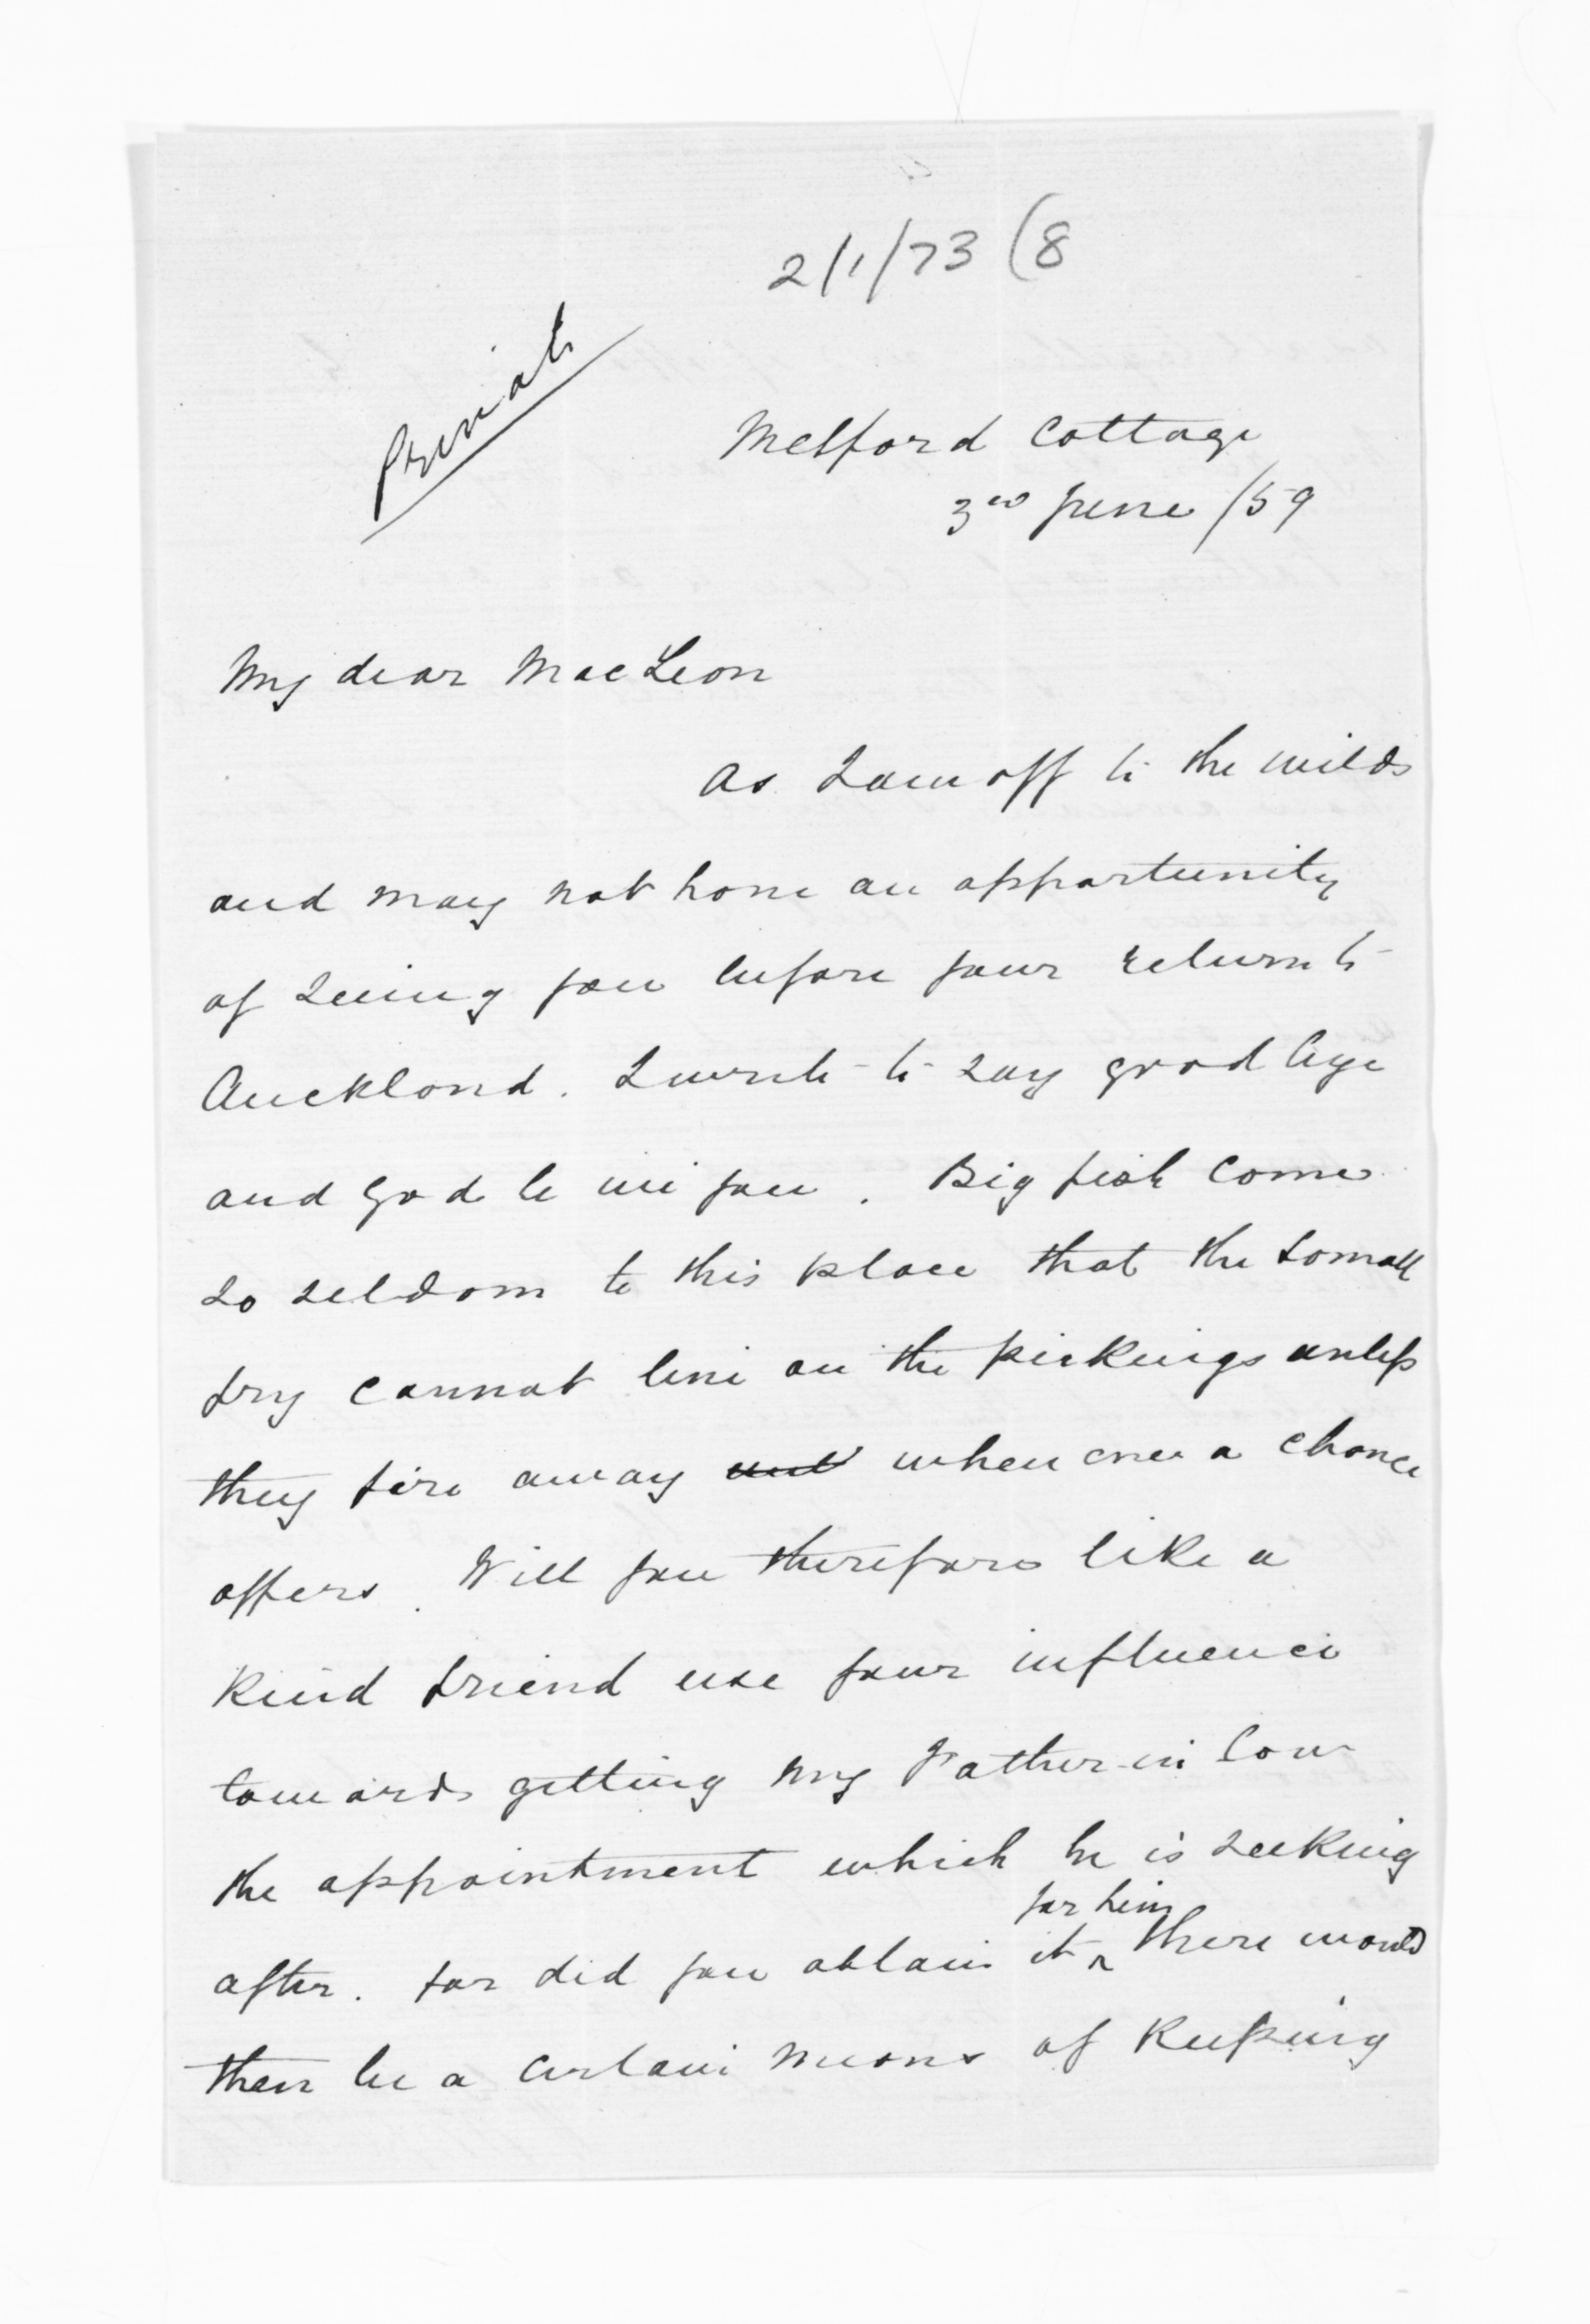 2/1/73 (8
Private
Melford Cottage
3rd June /59
My dear MacLean
As I am off to the wilds
and may not have an opportunity
of seeing you before your return to
Auckland. I write to say good bye
and God be wi you. Big fish come
so seldom to this place that the small
fry cannot live on the pickings unless
they fire away until whenever a chance
offers. Will you therefore like a
kind friend use your influence
towards getting my Father-in law
the appointment which he is seeking
for him
after. for did you obtain it ^ there would
then be a certain means of keeping